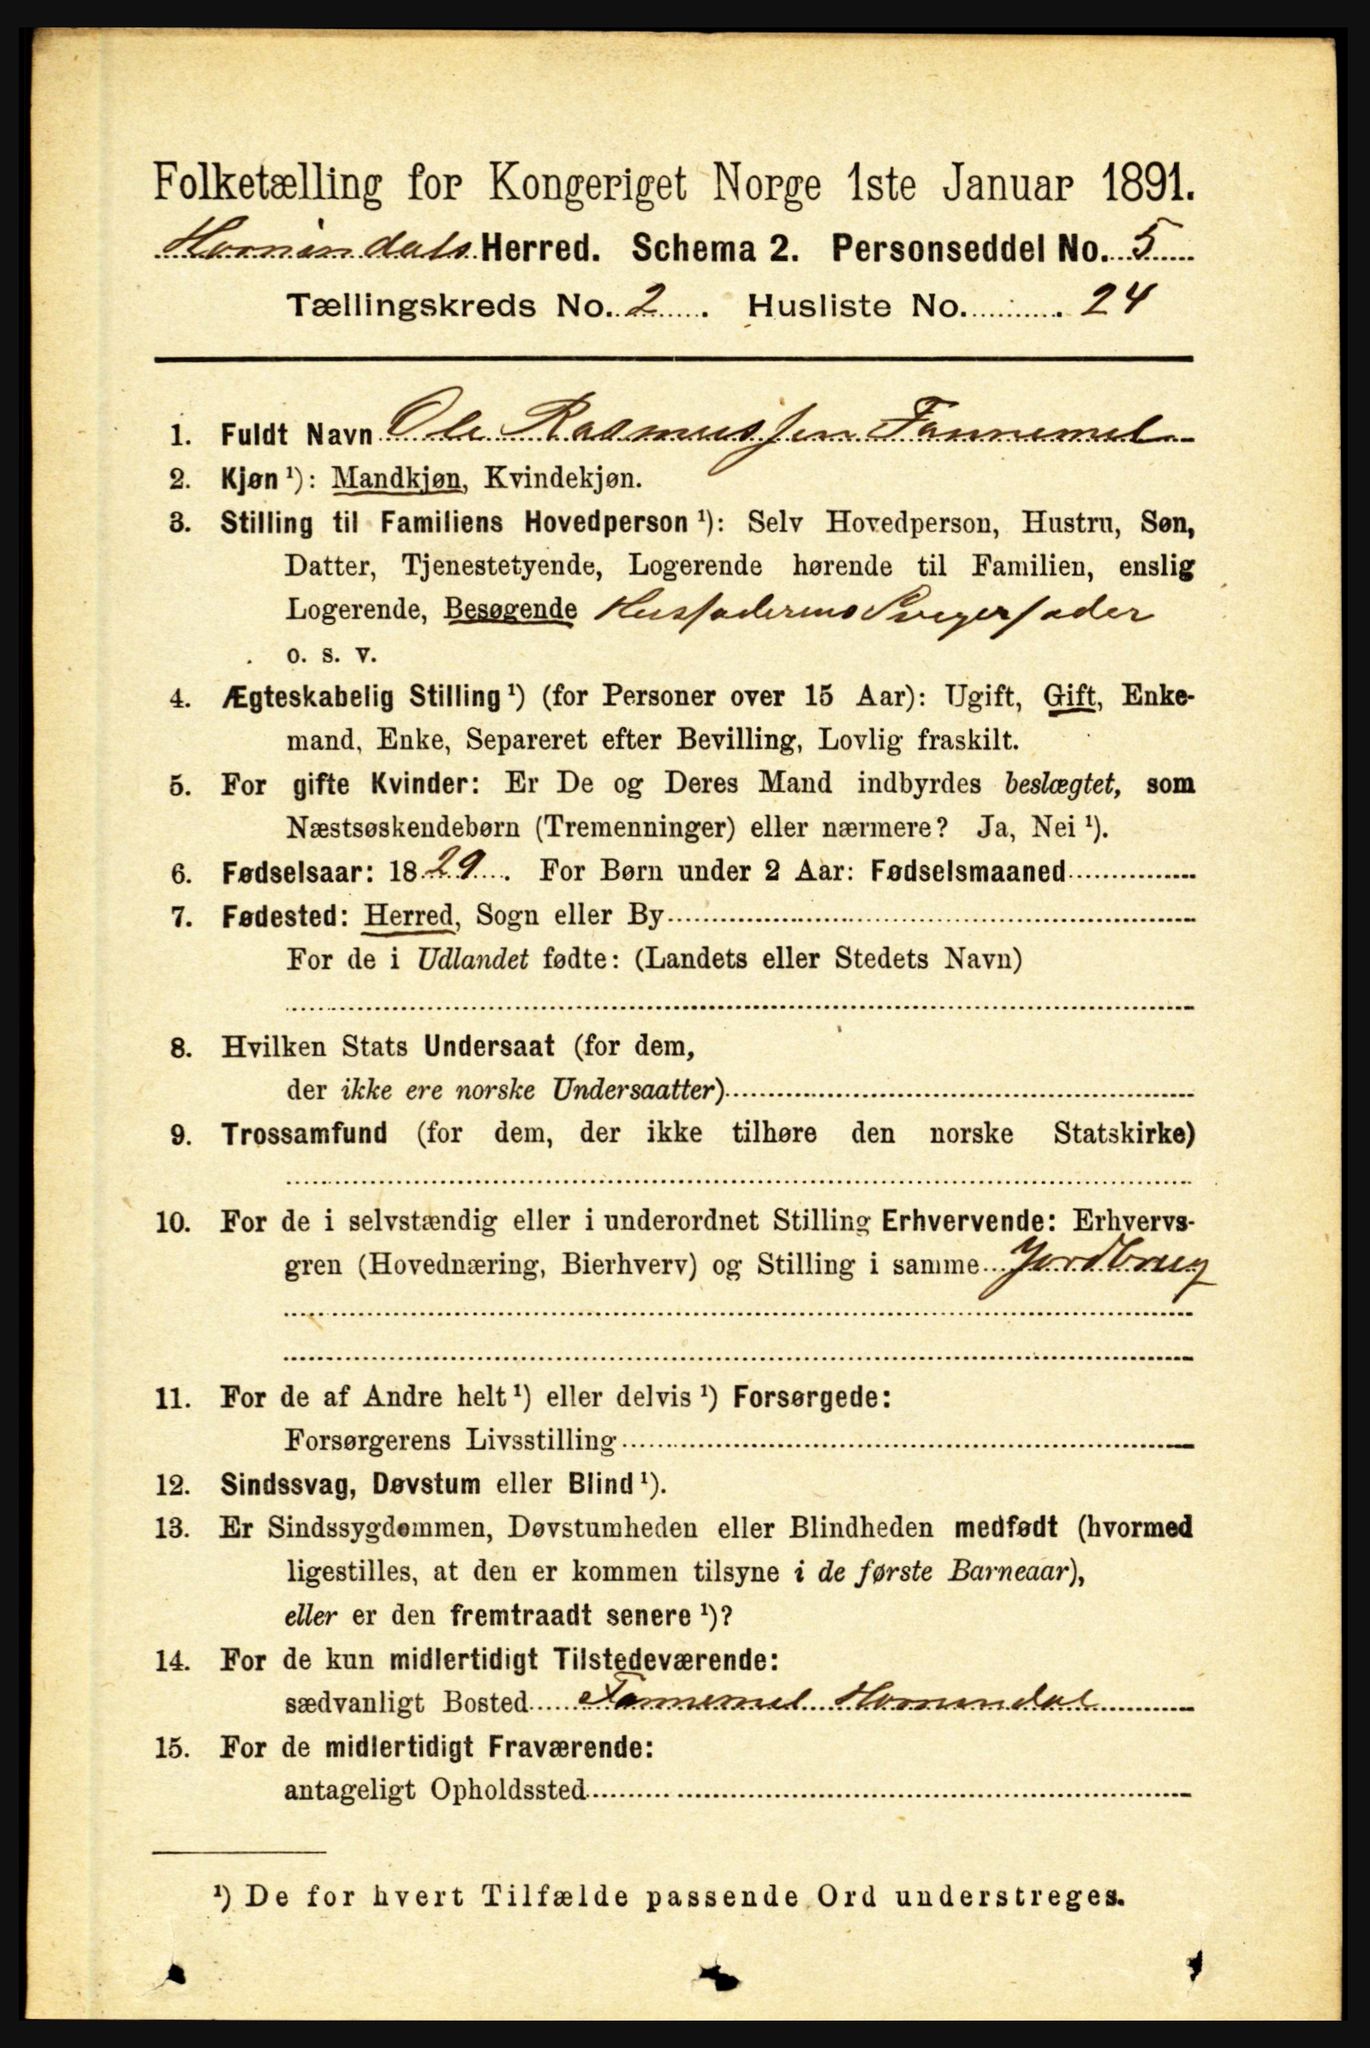 Folketælling for Kongeriget Norge 1ste Januar 1891.
Hornindals Herred. Schema 2. Personseddel No. 5
Tællingskreds No. 2. Husliste No. 24
1. Fuldt Navn Ole Rasmussen Tannemel
2. Kjøn ¹): Mandkjøn, Kvindekjøn.
3. Stilling til Familiens Hovedperson ¹): Selv Hovedperson, Hustru, Søn,
Datter, Tjenestetyende, Logerende hørende til Familien, enslig
Logerende, Besøgende Husfaderens Svigerfader
o. s. v.
4. Ægteskabelig Stilling ¹) (for Personer over 15 Aar): Ugift, Gift, Enke-
mand, Enke, Separeret efter Bevilling, Lovlig fraskilt.
5. For gifte Kvinder: Er De og Deres Mand indbyrdes beslægtet, som
Næstsøskendebørn (Tremenninger) eller nærmere? Ja, Nei ¹).
6. Fødselsaar: 1829. For Børn under 2 Aar: Fødselsmaaned
7. Fødested: Herred, Sogn eller By
For de i Udlandet fødte: (Landets eller Stedets Navn)
8. Hvilken Stats Undersaat (for dem,
der ikke ere norske Undersaatter)
9. Trossamfund (for dem, der ikke tilhøre den norske Statskirke)
10. For de i selvstændig eller i underordnet Stilling Erhvervende: Erhvervs-
gren (Hovednæring, Bierhverv) og Stilling i samme Jordbrug
11. For de af Andre helt ¹) eller delvis ¹) Forsørgede:
Forsørgerens Livsstilling
12. Sindssvag, Døvstum eller Blind ¹).
13. Er Sindssygdommen, Døvstumheden eller Blindheden medfødt (hvormed
ligestilles, at den er kommen tilsyne i de første Barneaar),
eller er den fremtraadt senere ¹)?
14. For de kun midlertidigt Tilstedeværende:
sædvanligt Bosted Tannemel Hornindal
15. For de midlertidigt Fraværende:
antageligt Opholdssted
¹) De for hvert Tilfælde passende Ord understreges.